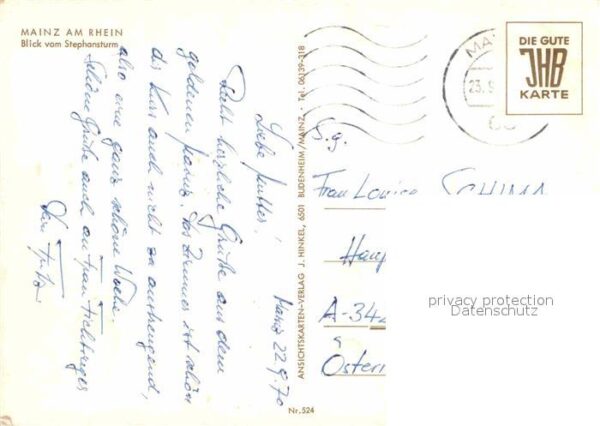 MAINZ AM RHEIN
Blick vom Stephansturm
Mainz 22.9.70
Liebe Mutter!
Recht herzliche Grüße aus dem
goldenen Mainz. Das Zimmer ist schön
der Kurs auch nicht zu anstrengend,
also eine ganz schöne Woche.
Schöne Grüße auch an Frau
Dein Fritz
ANSICHTSKARTEN-VERLAG J. HINKEL, 6501 BUDENHEIM/MAINZ · Tel. 06139-318
Nr. 524
DIE GUTE
JHB
KARTE
MA
23.9
65
S.g.
Frau
A-342
Österr
privacy protection
Datenschutz